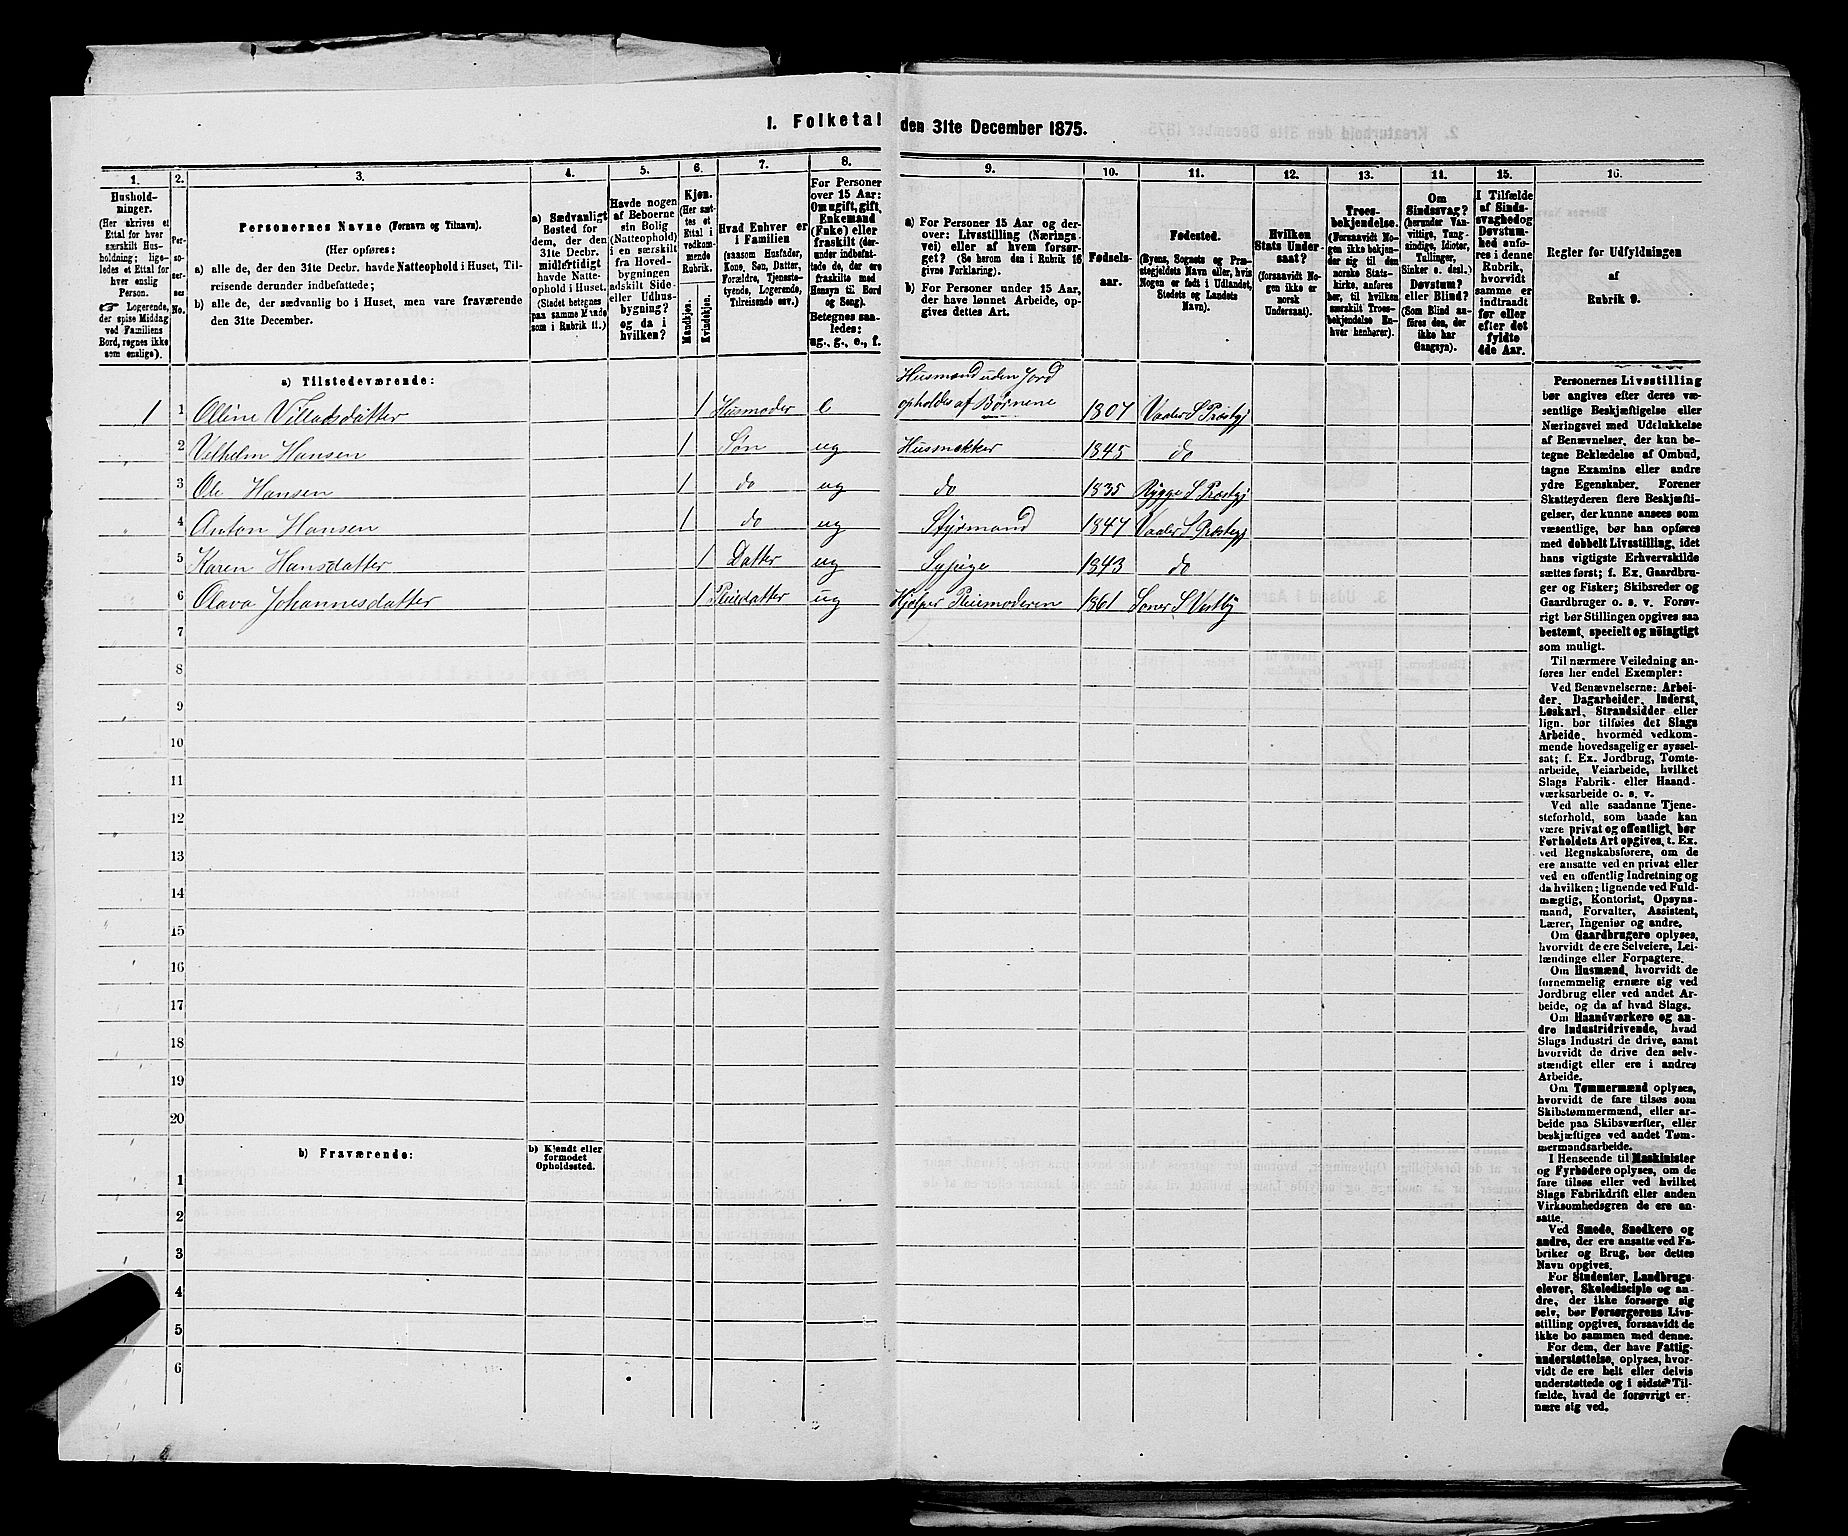 1. Folketal den 31te December 1875.
1.
Hushold-
ninger.
(Her skrives et
Ettal for hver
særskilt Hus-
holdning; lige-
ledes et Ettal for
hver enslig
Person.
☞ Logerende,
der spise Middag
ved Familiens
Bord, regnes ikke
som enslige).
2.
Per-
so-
ner-
nes
No.
3.
Personernes Navne (Fornavn og Tilnavn).
(Her opføres:
a) alle de, der den 31te Decbr. havde Natteophold i Huset, Til-
reisende derunder indbefattede;
b) alle de, der sædvanlig bo i Huset, men vare fraværende
den 31te December.
4.
a) Sædvanligt
Bosted for
dem, der den
31te Decbr.
midlertidigt
havde Natte-
ophold i Huset.
(Stedet betegnes
paa samme Maade
som i Rubrik 11.)
5.
Havde nogen
af Beboerne
sin Bolig
(Natteophold)
i en særskilt
fra Hoved-
bygningen
adskilt Side-
eller Udhus-
bygning?
og da i
hvilken?
6.
Kjøn.
(Her sæt-
tes et
Ettal i
vedkom-
mende
Rubrik.
Mandkjøn.
Kvindekjøn.
7.
Hvad Enhver er
i Familien
(saasom Husfader,
Kone, Søn, Datter,
Forældre, Tjeneste-
tyende, Logerende,
Tilreisende osv.)
8.
For Personer
over 15 Aar:
Om ugift, gift,
Enkemand
(Enke) eller
fraskilt (der-
under indbefat-
tede de, der ere
fraskilte med
Hensyn til Bord
og Seng).
Betegnes saa-
ledes:
ug., g., e., f.
9.
a) For Personer 15 Aar og der-
over: Livsstilling (Nærings
vei) eller af hvem forsør-
get? (Se herom den i Rubrik 16
givne Forklaring).
b) For Personer under 15 Aar,
der have lønnet Arbeide, op-
gives dettes Art.
10.
Fødsels-
aar.
11.
Fødested.
(Byens, Sognets og Præ-
stegjeldets Navn eller, hvis
Nogen er født i Udlandet,
Stedets og Landets
Navn).
12.
Hvilken
Stats Under
saat?
(forsaavidt No-
gen ikke er
norsk
Undersaat).
13.
Troes-
bekjendelse.
(Forsaavidt No-
gen ikke bekjen-
der sig til den
norske Stats-
kirke, anføres
her, til hvilken
særskilt Troes-
bekjendelse En-
hver henhører).
14.
Om
Sindssvag?
(herunder Van-
vittige, Tung-
sindige, Idioter,
Tullinger,
Sinker o. desl.)
Døvstum?
eller Blind?
(Som Blind an-
føres den, der
ikke har
Gangsyn).
15.
I Tilfælde
af Sinds-
svaghed og
Døvstum-
hed anfø-
res i denne
Rubrik,
hvorvidt
samme er
indtraadt
før eller
efter det
fyldte
4de Aar.
16.
Regler for Udfyldningen
af
Rubrik 9.
a) Tilstedeværende:
1 1 Olline Villadsdatter 1 Husmoder e Husmand uden Jord
opholdes af Børnene 1807 Vaaler S Præstgj
2 Vilhelm Hansen 1 Søn ug Husmækker 1845 do
3 Ole Hansen 1 do ug do 1835 Rygge S Præstgj
4 Anton Hansen 1 do ug Styrmand 1847 Vaaler S Præstgj
5 Karen Hansdatter 1 Datter ug Sypige 1843 do
6 Olava Johannesdatter 1 Pleiedatter ug Hjelper Pleiemoderen 1861 Soner S Vestby
7
8
9
10
11
12
13
14
15
16
17
18
19
20
b) Fraværende:
b) Kjendt eller
formodet
Opholdssted.
1
2
3
4
5
6
Personernes Livsstilling
bør angives efter deres væ-
sentlige Beskjæftigelse eller
Næringsvei med Udelukkelse
af Benævnelser, der kun be-
tegne Beklædelse af Ombud,
tagne Examina eller andre
ydre Egenskaber. Forener
Skatteyderen flere Beskjæfti-
gelser, der kunne ansees som
væsentlige, bør han opføres
med dobbelt Livsstilling, idet
hans vigtigste Erhvervskilde
sættes først; f. Ex. Gaardbru-
ger og Fisker; Skibsreder og
Gaardbruger o. s. v. Forøv-
rigt bør Stillingen opgives saa
bestemt, specielt og nøiagtigt
som muligt.
Til nærmere Veiledning an-
føres her endel Exempler:
Ved Benævnelserne: Arbei-
der, Dagarbeider, Inderst,
Løskarl, Strandsidder eller
lign. bør tilføies det Slags
Arbeide, hvormed vedkom-
mende hovedsagelig er syssel-
sat; f. Ex. Jordbrug, Tomte-
arbeide, Veiarbeide, hvilket
Slags Fabrik- eller Haand-
værksarbeide o. s. v.
Ved alle saadanne Tjene-
steforhold, som baade kan
være privat og offentligt, bør
Forholdets Art opgives, t. Ex.
ved Regnskabsførere, om de
ere ansatte ved en privat eller
ved en offentlig Indretning og
da hvilken; lignende ved Fuld-
mægtig, Kontorist, Opsyns-
mand, Forvalter, Assistent,
Lærer, Ingeniør og andre.
Om Gaardbrugere oplyses,
hvorvidt de ere Selveiere, Lei-
lændinge eller Forpagtere.
Om Husmænd, hvorvidt de
fornemmelig ernære sig ved
Jordbrug eller ved andet Ar-
beide, og da af hvad Slags.
Om Haandværkere og an-
dre Industridrivende, hvad
Slags Industri de drive, samt
hvorvidt de drive den selv-
stændigt eller ere i andres
Arbeide.
Om Tømmermænd oplyses,
hvorvidt de fare tilsøs som
Skibstømmermænd, eller ar-
beide paa Skibsværfter, eller
beskjæftiges ved andet Tøm-
mermandsarbeide.
I Henseende til Maskinister
og Fyrbødere oplyses, om de
fare tilsøs eller ved hvilket
Slags Fabrikdrift eller anden
Virksomhedsgren de ere an-
satte.
Ved Smede, Snedkere og
andre, der ere ansatte ved Fa-
briker og Brug, bør dettes
Navn opgives.
For Studenter, Landbrugs-
elever, Skoledisciple og an-
dre, der ikke forsørge sig
selv, bør Forsørgerens Livs-
stilling opgives, forsaavidt de
ikke bo sammen med denne.
For dem, der have Fattig-
understøttelse, oplyses, hvor-
vidt de ere helt eller delvis
understøttede og i sidste Til-
fælde, hvad de forøvrigt er-
nære sig ved.